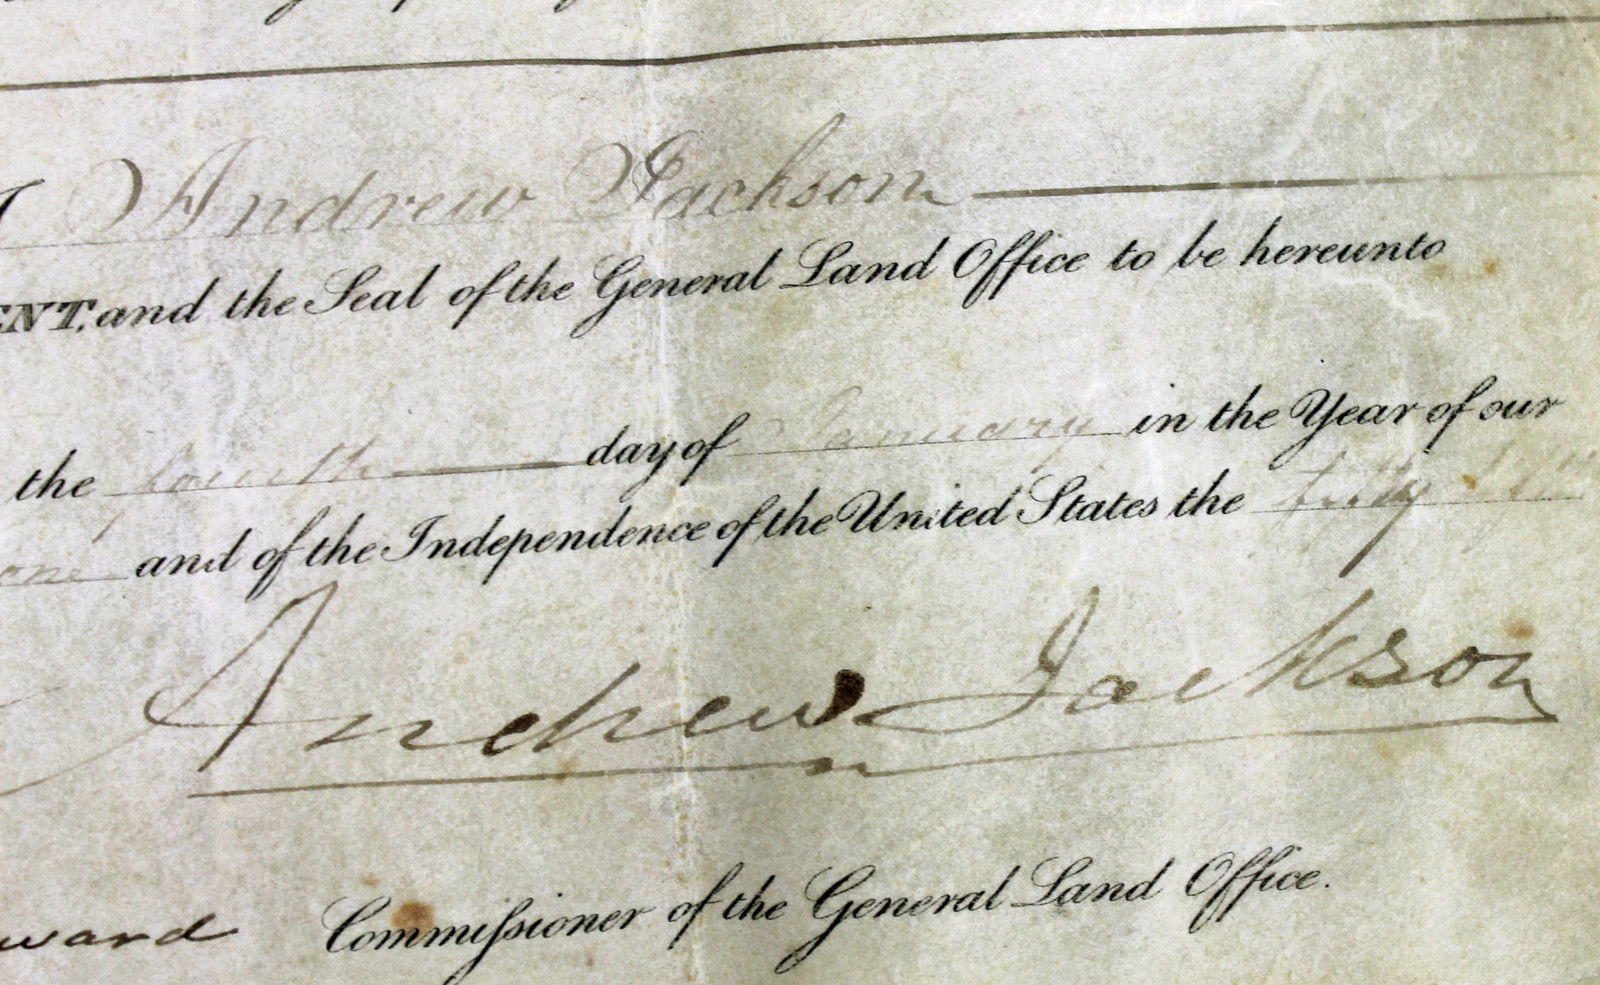 Andrew Jackson
ENT, and the Seal of the General Land Office to be hereunto
the fourth day of January in the Year of our
one and of the Independence of the United States the fifty fifth
Andrew Jackson
ward Commiſsioner of the General Land Office.